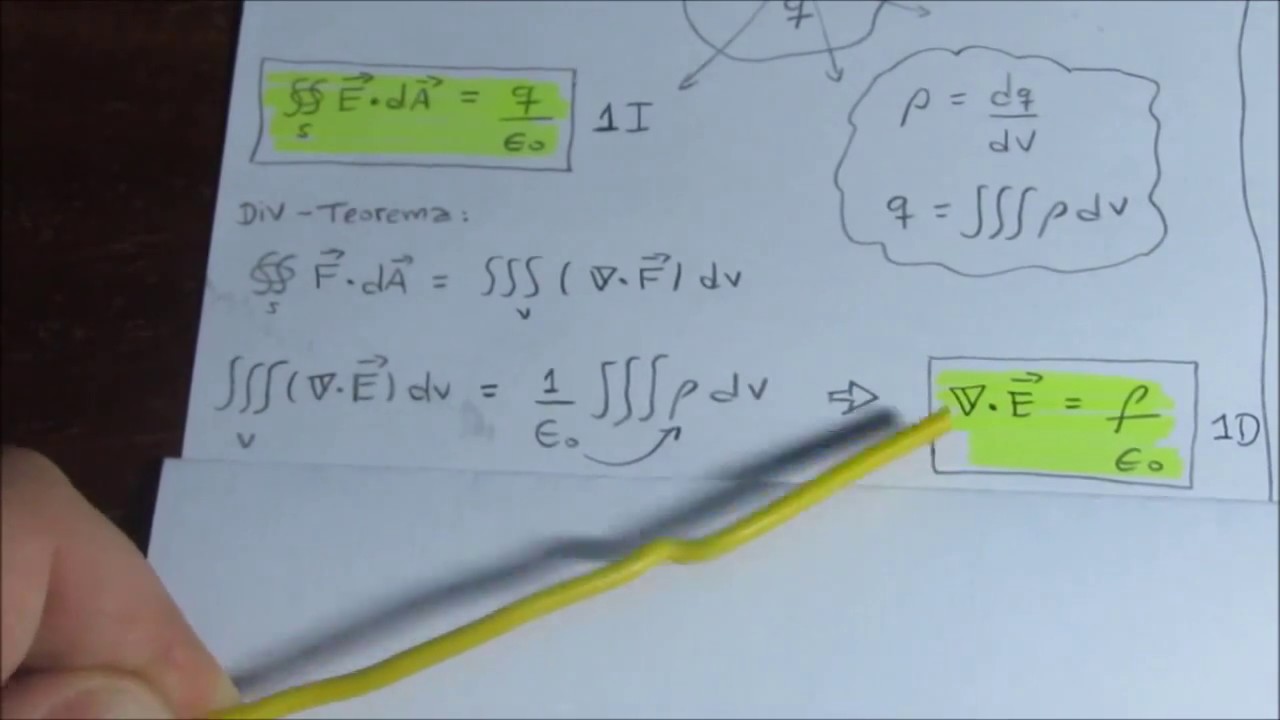 q
∯ₛ E⃗ · dA⃗ = q/ϵ₀ 1I
ρ = dq/dv
q = ∭ ρ dv
Div - Teorema:
∯ₛ F⃗ · dA⃗ = ∭ᵥ (∇ · F⃗) dv
∭ᵥ (∇ · E⃗) dv = 1/ϵ₀ ∭ ρ dv ⇒ ∇ · E⃗ = ρ/ϵ₀ 1D